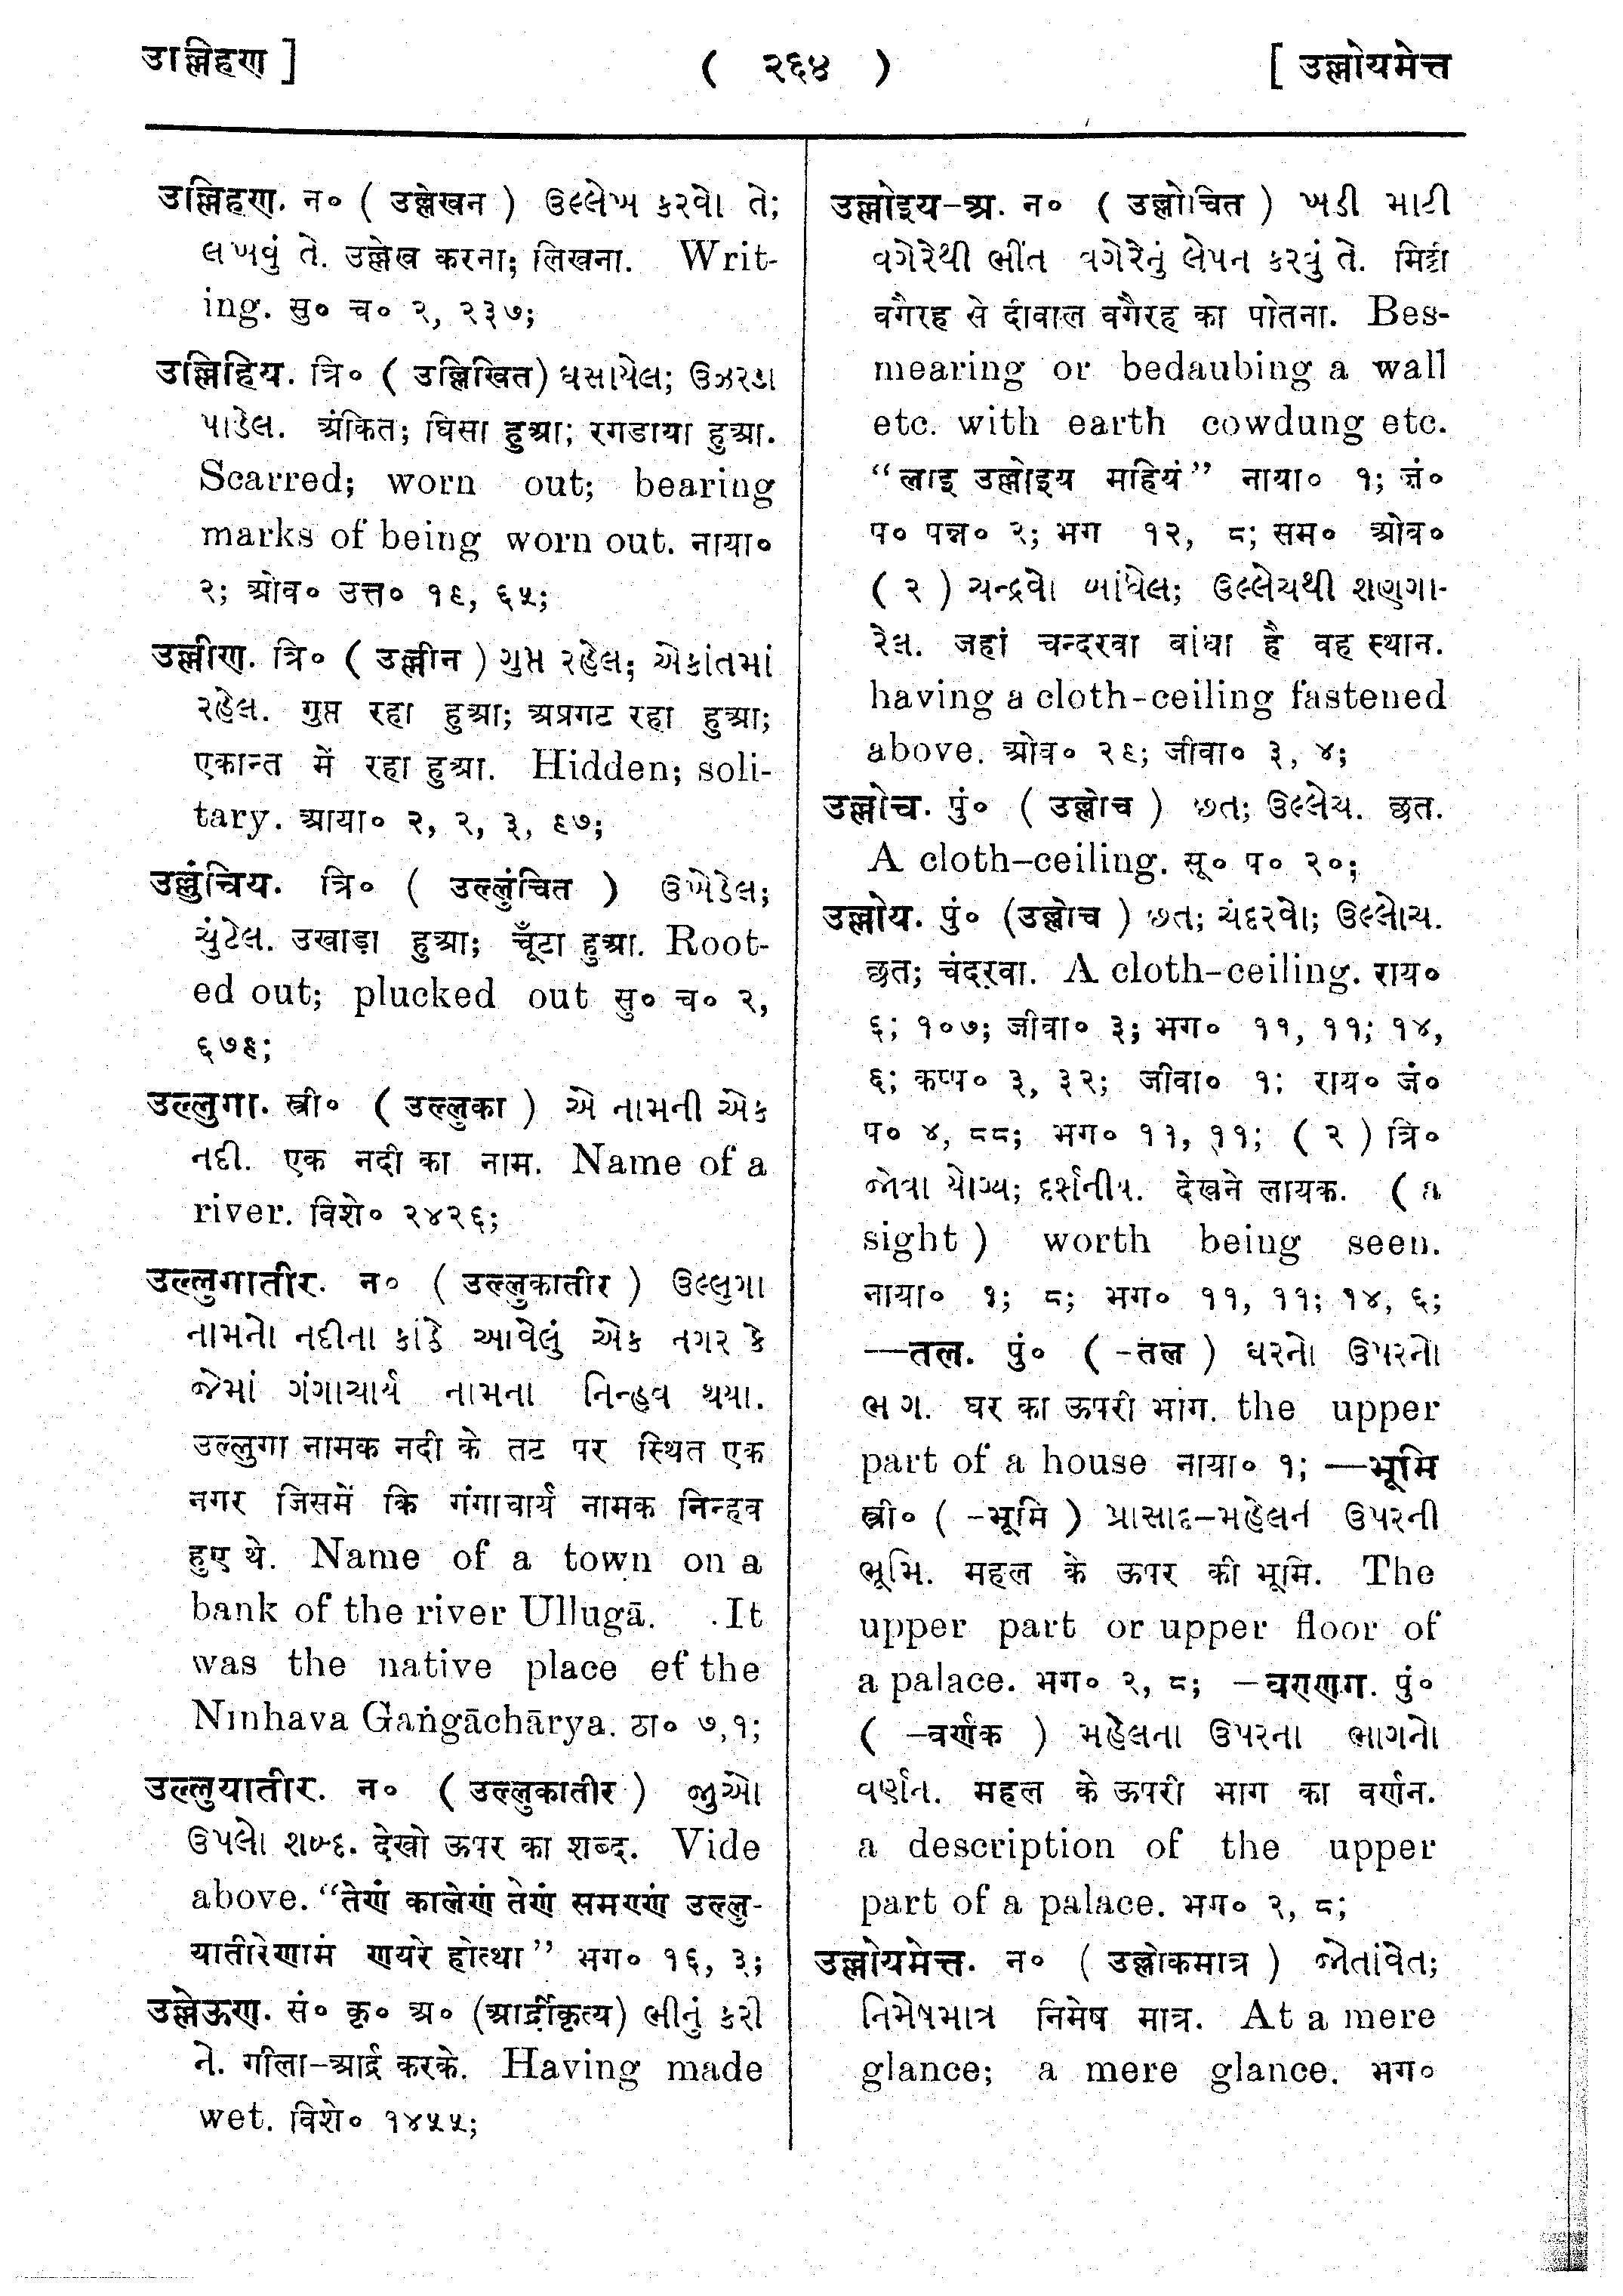 उल्लिहण ]
( २६४ )
[ उल्लोयमेत्त
उल्लिहण. न॰ ( उल्लेखन ) ઉલ્લેખ કરવો તે;
લખવું તે. उल्लेख करना; लिखना. Writ-
ing. सु॰ च॰ २, २३७;
उल्लिहिय. त्रि॰ ( उल्लिखित) ઘસાયેલ; ઉઝરડા
પાડેલ. अंकित; घिसा हुआ; रगडाया हुआ.
Scarred; worn out; bearing
marks of being worn out. नाया॰
२; ओव॰ उत्त॰ १९, ६५;
उल्लीण. त्रि॰ ( उल्लीन ) ગુપ્ત રહેલ; એકાંતમાં
રહેલ. गुप्त रहा हुआ; अप्रगट रहा हुआ;
एकान्त में रहा हुआ. Hidden; soli-
tary. आया॰ २, २, ३, ९७;
उल्लुंचिय. त्रि॰ ( उल्लुंचित ) ઉખેડેલ;
ચુંટેલ. उखाड़ा हुआ; चूँटा हुआ. Root-
ed out; plucked out सु॰ च॰ २,
६७९;
उल्लुगा. स्त्री॰ ( उल्लुका ) એ નામની એક
નદી. एक नदी का नाम. Name of a
river. विशे॰ २४२६;
उल्लुगातीर. न॰ ( उल्लुकातीर ) ઉલ્લુગા
નામની નદીના કાંઠે આવેલું એક નગર કે
જેમાં ગંગાચાર્ય નામના નિન્હવ થયા.
उल्लुगा नामक नदी के तट पर स्थित एक
नगर जिसमें कि गंगाचार्य नामक निन्हव
हुए थे. Name of a town on a
bank of the river Ullugā. .It
was the native place ef the
Ninhava Gaṅgāchārya. ठा॰ ७,१;
उल्लुयातीर. न॰ ( उल्लुकातीर ) જુઓ
ઉપલો શબ્દ. देखो ऊपर का शब्द. Vide
above. “तेणं कालेणं तेणं समएणं उल्लु-
यातीरेणामं णयरे होत्था” भग॰ १६, ३;
उल्लेऊण. सं॰ कृ॰ अ॰ (आर्द्रीकृत्य) ભીનું કરી
ને. गीला-आर्द्र करके. Having made
wet. विशे॰ १४५५;
उल्लोइय-अ. न॰ ( उल्लोचित ) ખડી માટી
વગેરેથી ભીંત વગેરેનું લેપન કરવું તે. मिट्टी
वगैरह से दीवाल वगैरह का पोतना. Bes-
mearing or bedaubing a wall
etc. with earth cowdung etc.
“लाइ उल्लोइय महियं” नाया॰ १; जं॰
प॰ पन्न॰ २; भग १२, ८; सम॰ ओव॰
( २ ) ચન્દ્રવો બાંધેલ; ઉલ્લેચથી શણગા-
રેલ. जहां चन्दरवा बांधा है वह स्थान.
having a cloth-ceiling fastened
above. ओव॰ २९; जीवा॰ ३, ४;
उल्लोच. पुं॰ ( उल्लोच ) છત; ઉલ્લેચ. छत.
A cloth-ceiling. सू॰ प॰ २०;
उल्लोय. पुं॰ (उल्लोच ) છત; ચંદરવો; ઉલ્લોચ.
छत; चंदरवा. A cloth-ceiling. राय॰
६; १०७; जीवा॰ ३; भग॰ ११, ११; १४,
६; कप्प॰ ३, ३२; जीवा॰ १; राय॰ जं॰
प॰ ४, ८८; भग॰ ११, ११; ( २ ) त्रि॰
જોવા યોગ્ય; દર્શનીય. देखने लायक. ( a
sight ) worth being seen.
नाया॰ १; ८; भग॰ ११, ११; १४, ६;
—तल. पुं॰ ( -तल ) ઘરનો ઉપરનો
ભાગ. घर का ऊपरी भाग. the upper
part of a house नाया॰ १; —भूमि
स्त्री॰ ( -भूमि ) પ્રાસાદ-મહેલની ઉપરની
ભૂમિ. महल के ऊपर की भूमि. The
upper part or upper floor of
a palace. भग॰ २, ८; —वण्णग. पुं॰
( -वर्णक ) મહેલના ઉપરના ભાગનો
વર્ણન. महल के ऊपरी भाग का वर्णन.
a description of the upper
part of a palace. भग॰ २, ८;
उल्लोयमेत्त. न॰ ( उल्लोकमात्र ) જોતાંવેત;
નિમેષમાત્ર निमेष मात्र. At a mere
glance; a mere glance. भग॰